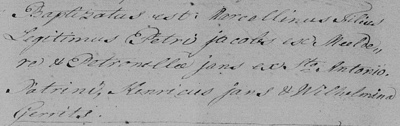 Baptizatus est Marcellinus filius
Legitimus Petri Jacobs ex Mulde,,
ro & Petronellæ Jans ex Sto Antonio.
Patrini, Henricus Jans & Wilhelmina
Gerrits.